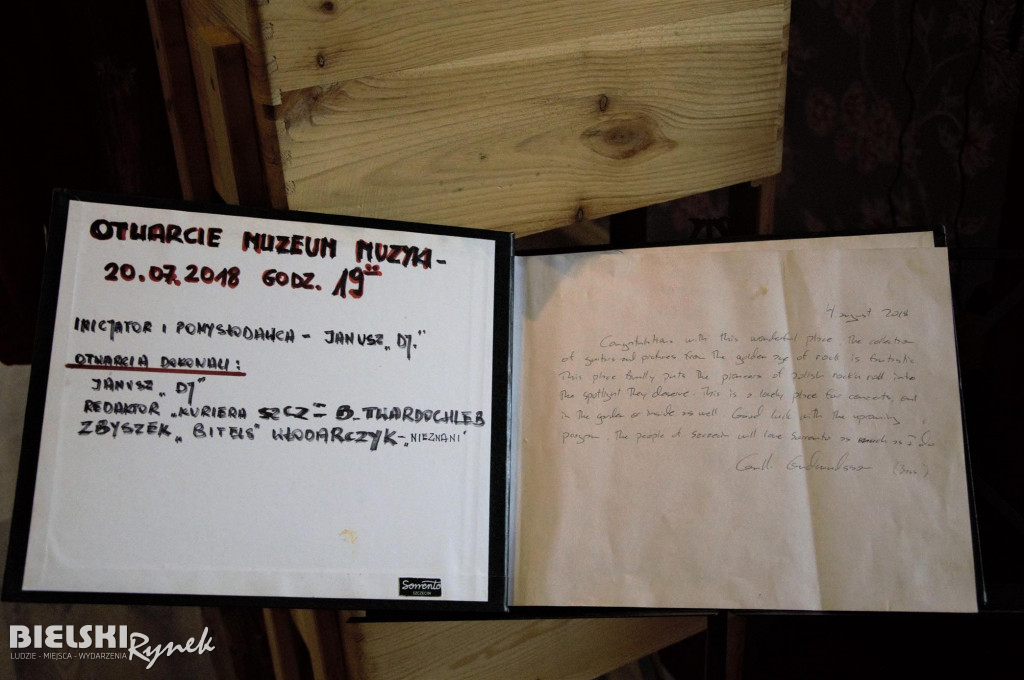 OTWARCIE MUZEUM MUZYKI -
20.07.2018 GODZ. 19
INICJATOR I POMYSŁODAWCA - JANUSZ „DJ."
OTWARCIA DOKONALI:
JANUSZ „DJ"
REDAKTOR „KURIERA SZCZ" = B. TWARDOCHLEB
ZBYSZEK „BITELS" WŁODARCZYK - „NIEZNANI"
Sorrento
SZCZECIN
august 2018
Congratulations with this wonderful place. The collection
of guitars and pictures from the golden age of rock is fantastic.
This place finally puts the pioneers of polish rock'n roll into
the spotlight they deserve. This is a lovely place for concerts, out
in the garden or inside as well. Good luck with the upcoming
program. The people of Szczecin will love Sorrento as much as I do
BIELSKI Rynek
LUDZIE - MIEJSCA - WYDARZENIA